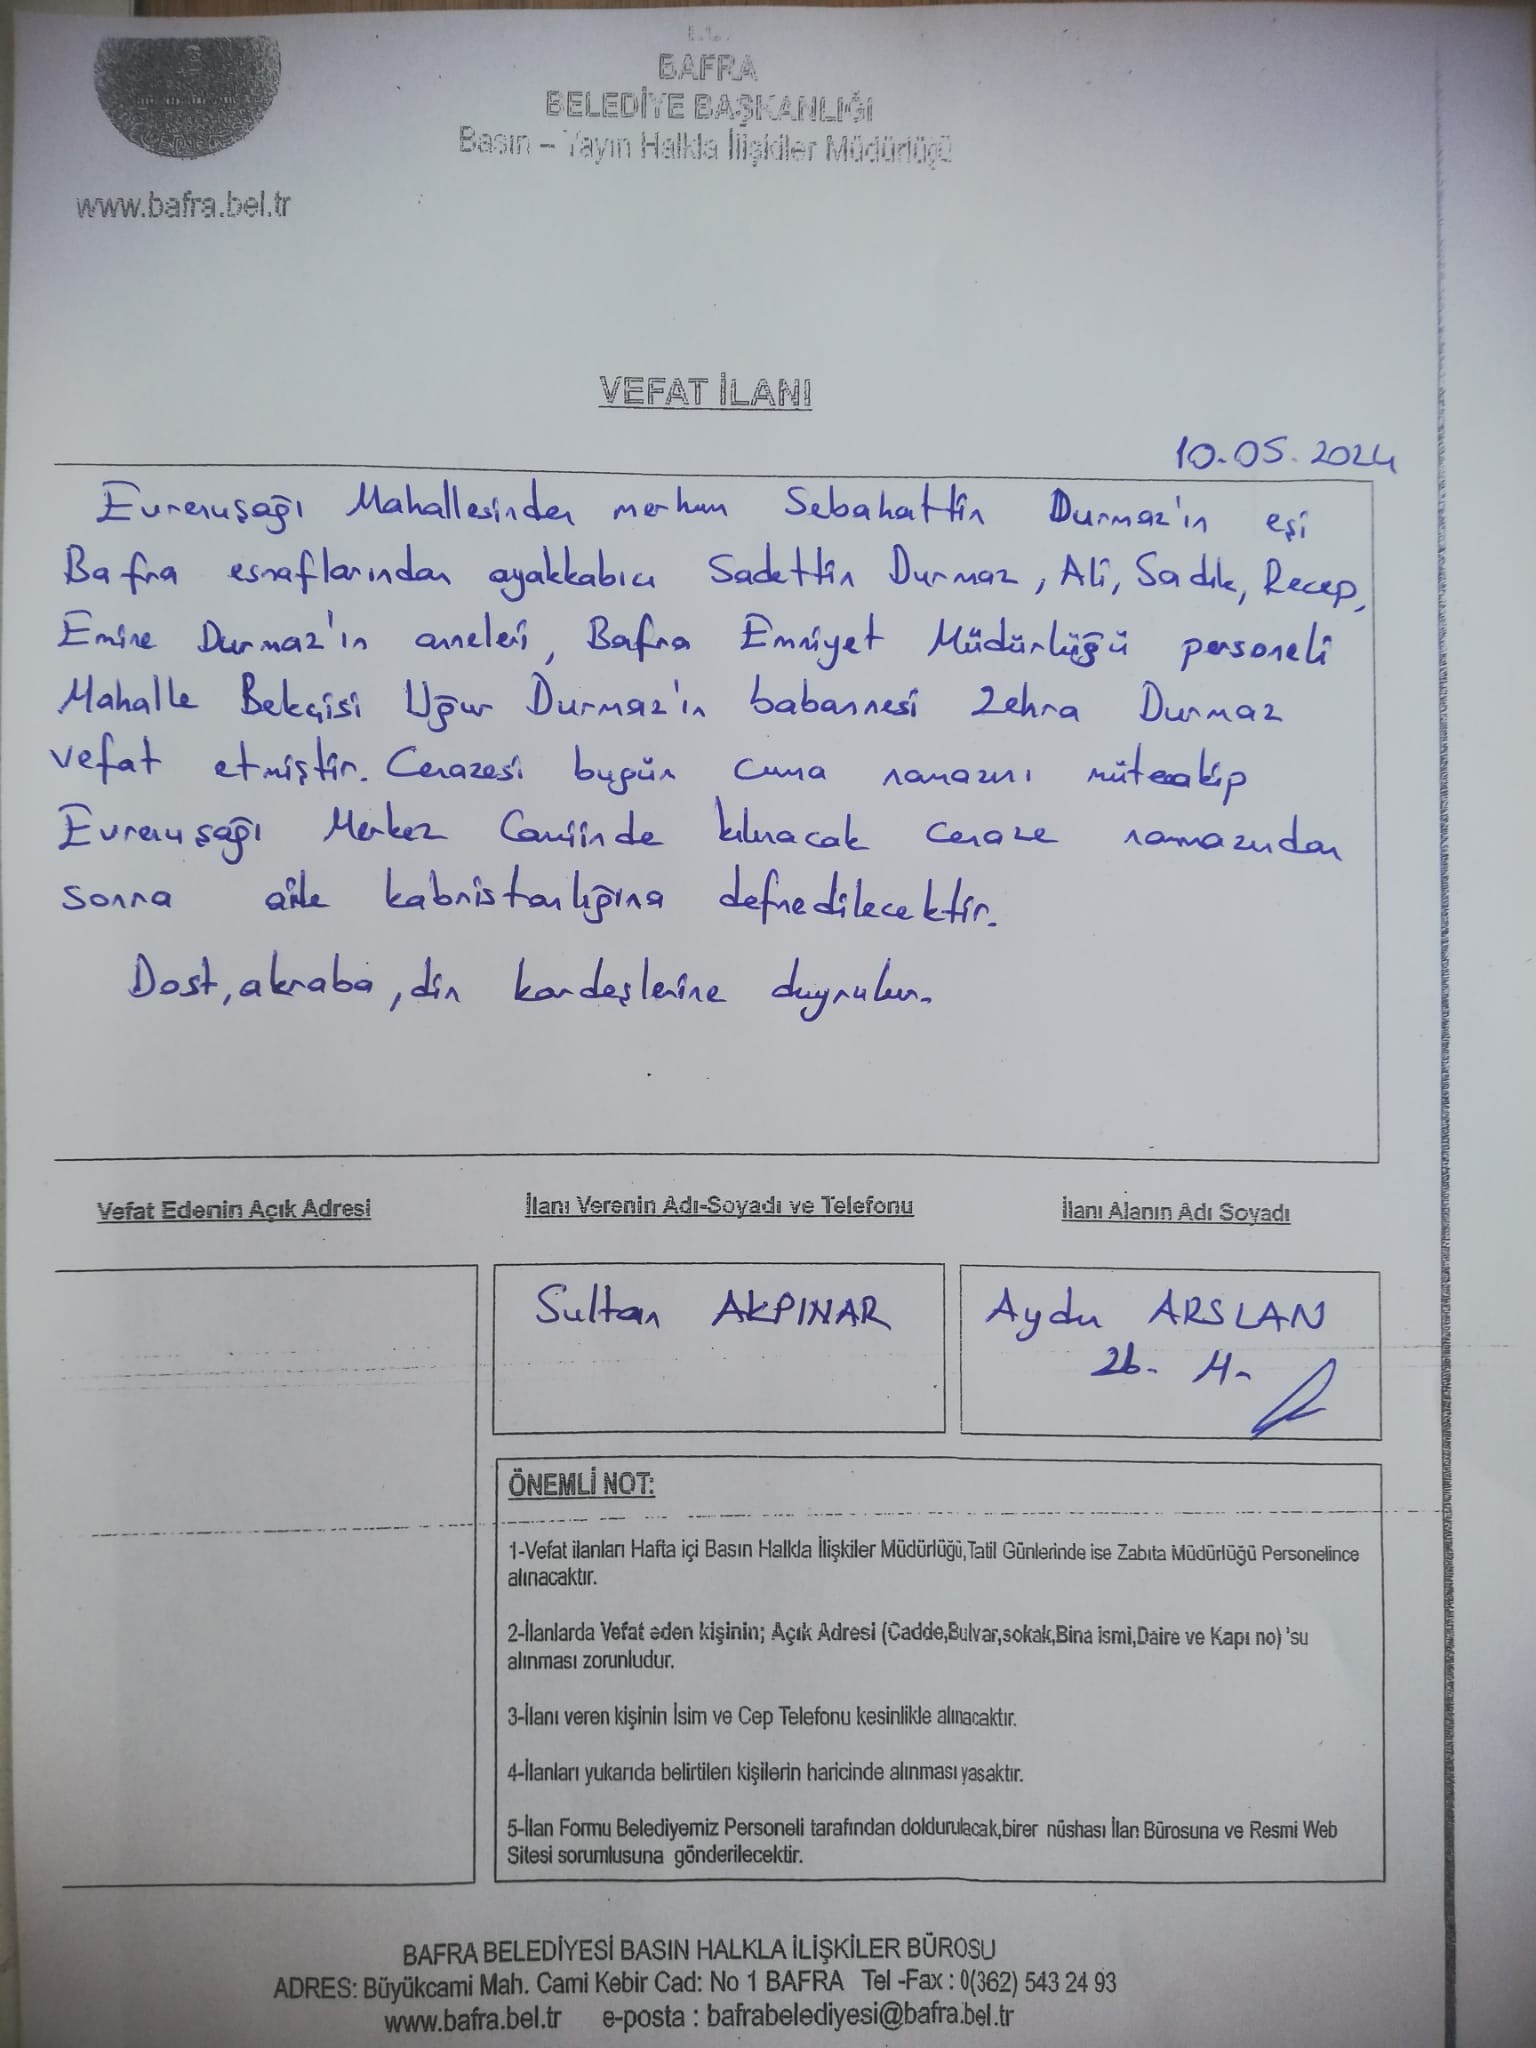 T.C.
BAFRA
BELEDİYE BAŞKANLIĞI
Basın – Yayın Halkla İlişkiler Müdürlüğü
www.bafra.bel.tr
VEFAT İLANI
10.05.2024
Evrenuşağı Mahallesinden merhum Sebahattin Durmaz'ın eşi
Bafra esnaflarından ayakkabıcı Sadettin Durmaz, Ali, Sadık, Recep,
Emine Durmaz'ın anneleri, Bafra Emniyet Müdürlüğü personeli
Mahalle Bekçisi Uğur Durmaz'ın babannesi Zehra Durmaz
vefat etmiştir. Cenazesi bugün cuma namazını müteakip
Evrenuşağı Merkez Camiinde kılınacak cenaze namazından
sonra aile kabristanlığına defnedilecektir.
Dost, akraba, din kardeşlerine duyrulur.
Vefat Edenin Açık Adresi
İlanı Verenin Adı-Soyadı ve Telefonu
İlanı Alanın Adı Soyadı
Sultan AKPINAR
Aydın ARSLAN
Zb. M.
ÖNEMLİ NOT:
1-Vefat ilanları Hafta içi Basın Halkla İlişkiler Müdürlüğü,Tatil Günlerinde ise Zabıta Müdürlüğü Personelince
alınacaktır.
2-İlanlarda Vefat eden kişinin; Açık Adresi (Cadde,Bulvar,sokak,Bina ismi,Daire ve Kapı no) 'su
alınması zorunludur.
3-İlanı veren kişinin İsim ve Cep Telefonu kesinlikle alınacaktır.
4-İlanları yukarıda belirtilen kişilerin haricinde alınması yasaktır.
5-İlan Formu Belediyemiz Personeli tarafından doldurulacak,birer nüshası İlan Bürosuna ve Resmi Web
Sitesi sorumlusuna gönderilecektir.
BAFRA BELEDİYESİ BASIN HALKLA İLİŞKİLER BÜROSU
ADRES: Büyükcami Mah. Cami Kebir Cad: No 1 BAFRA Tel -Fax : 0(362) 543 24 93
www.bafra.bel.tr e-posta : bafrabelediyesi@bafra.bel.tr